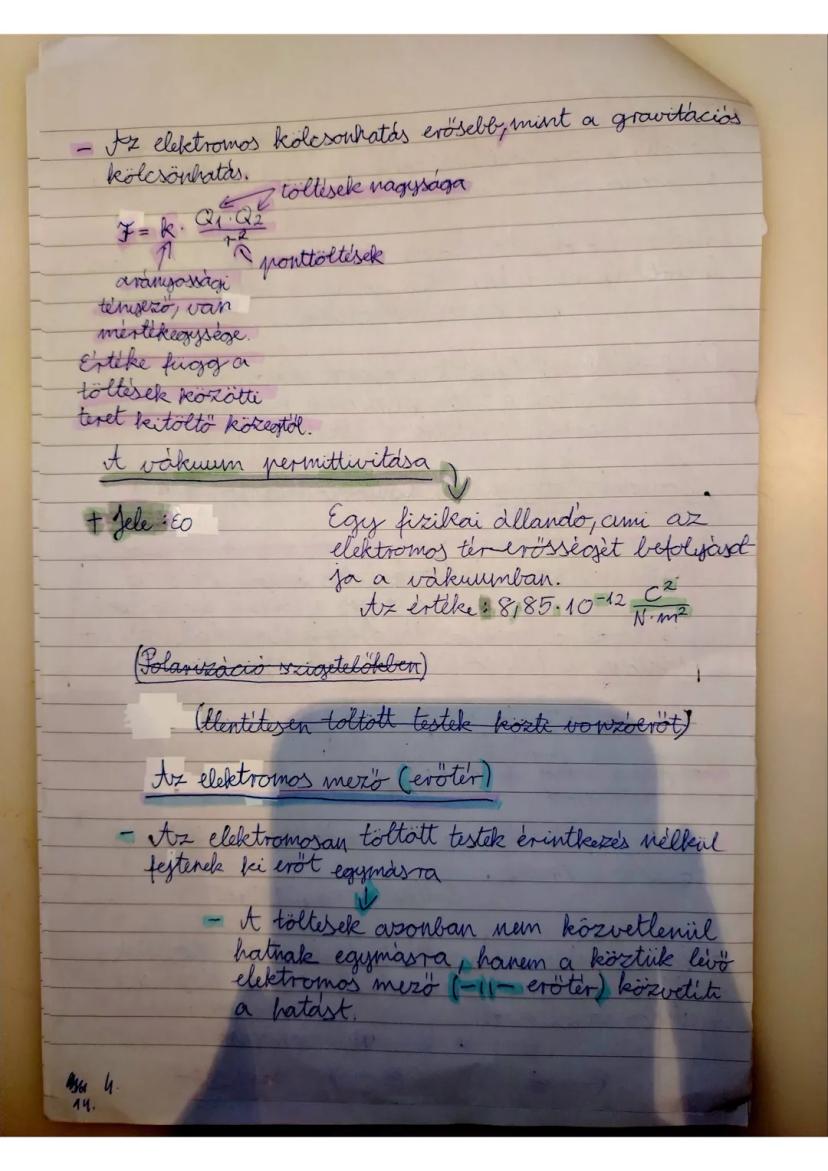 - Az elektromos kölcsönhatás erősebb, mint a gravitációs
kölcsönhatás.
töltések nagysága
F = k · Q1 · Q2 / r²
ponttöltések
arányossági
tényező, van
mértékegysége.
Értéke függ a
töltések közötti
teret kitöltő közegtől.
A vákuum permittivitása
+ Jele : ε0
Egy fizikai állandó, ami az
elektromos tér erősségét befolyásol
ja a vákuumban.
Az értéke : 8,85·10⁻¹² C²/N·m²
(Polarizáció szigetelőkben)
(Ellentétesen töltött testek közti vonzóerőt)
Az elektromos mező (erőtér)
- Az elektromosan töltött testek érintkezés nélkül
fejtenek ki erőt egymásra
- A töltések azonban nem közvetlenül
hatnak egymásra, hanem a köztük lévő
elektromos mező (-11- erőtér) közvetíti
a hatást.
4.
14.